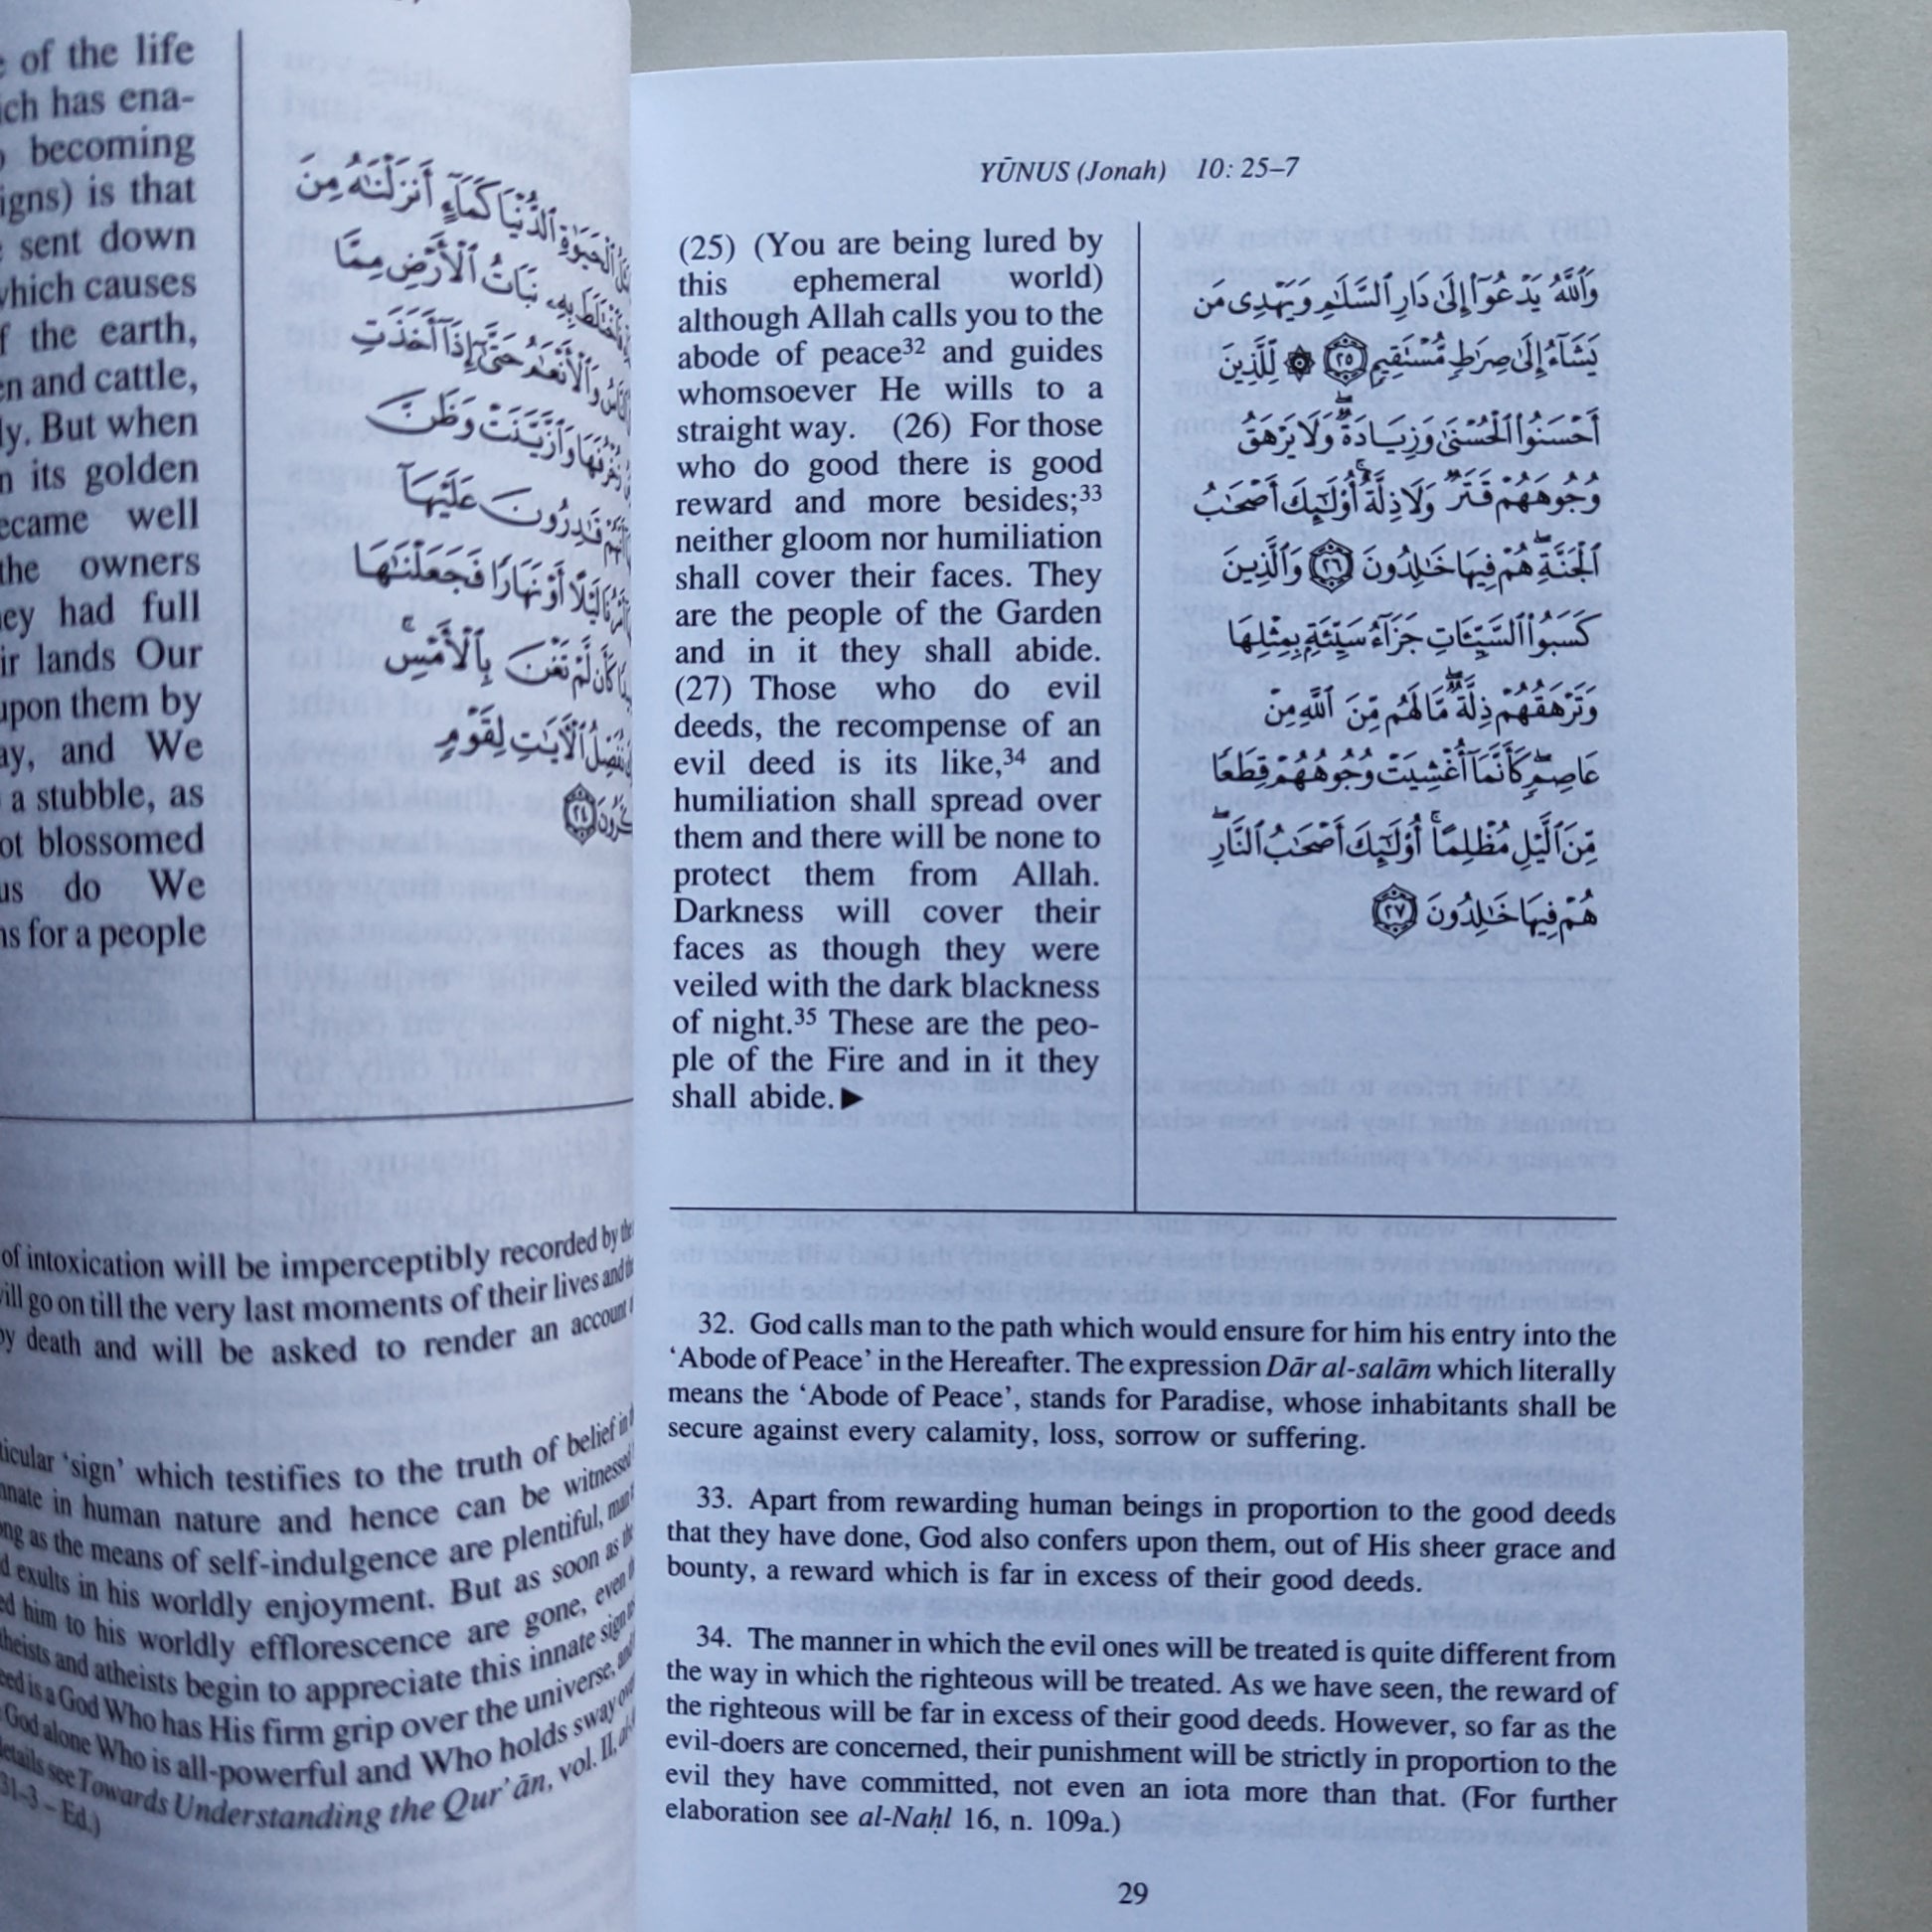 of the life
has ena-
becoming
is that
sent down
which causes
the earth,
and cattle,
But when
its golden
well
the owners
had full
lands Our
upon them by
and We
a stubble, as
blossomed
do We
for a people
ٱلدُّنْيَا كَمَآءٍ أَنزَلْنَٰهُ مِنَ
نَبَاتُ ٱلْأَرْضِ مِمَّا
وَٱلْأَنْعَٰمُ حَتَّىٰٓ إِذَآ أَخَذَتِ
وَٱزَّيَّنَتْ وَظَنَّ
قَٰدِرُونَ عَلَيْهَآ
لَيْلًا أَوْ نَهَارًا فَجَعَلْنَٰهَا
لَّمْ تَغْنَ بِٱلْأَمْسِ ۚ
ٱلْأٓيَٰتِ لِقَوْمٍ
٢٤
of intoxication will be imperceptibly recorded by
go on till the very last moments of their lives and
death and will be asked to render an account
‘sign’ which testifies to the truth of belief
in human nature and hence can be witnessed
as the means of self-indulgence are plentiful,
exults in his worldly enjoyment. But as soon as
him to his worldly efflorescence are gone, even
and atheists begin to appreciate this innate sign
is a God Who has His firm grip over the universe,
God alone Who is all-powerful and Who holds sway
see Towards Understanding the Qur’ān, vol. II,
– Ed.)
YŪNUS (Jonah) 10: 25–7
(25) (You are being lured by
this ephemeral world)
although Allah calls you to the
abode of peace³² and guides
whomsoever He wills to a
straight way. (26) For those
who do good there is good
reward and more besides;³³
neither gloom nor humiliation
shall cover their faces. They
are the people of the Garden
and in it they shall abide.
(27) Those who do evil
deeds, the recompense of an
evil deed is its like,³⁴ and
humiliation shall spread over
them and there will be none to
protect them from Allah.
Darkness will cover their
faces as though they were
veiled with the dark blackness
of night.³⁵ These are the peo-
ple of the Fire and in it they
shall abide.▶
وَٱللَّهُ يَدْعُوٓا۟ إِلَىٰ دَارِ ٱلسَّلَٰمِ وَيَهْدِى مَن
يَشَآءُ إِلَىٰ صِرَٰطٍ مُّسْتَقِيمٍ ٢٥ ۞ لِّلَّذِينَ
أَحْسَنُوا۟ ٱلْحُسْنَىٰ وَزِيَادَةٌ ۖ وَلَا يَرْهَقُ
وُجُوهَهُمْ قَتَرٌ وَلَا ذِلَّةٌ ۚ أُو۟لَٰٓئِكَ أَصْحَٰبُ
ٱلْجَنَّةِ ۖ هُمْ فِيهَا خَٰلِدُونَ ٢٦ وَٱلَّذِينَ
كَسَبُوا۟ ٱلسَّيِّـَٔاتِ جَزَآءُ سَيِّئَةٍۭ بِمِثْلِهَا
وَتَرْهَقُهُمْ ذِلَّةٌ ۖ مَّا لَهُم مِّنَ ٱللَّهِ مِنْ
عَاصِمٍ ۖ كَأَنَّمَآ أُغْشِيَتْ وُجُوهُهُمْ قِطَعًا
مِّنَ ٱلَّيْلِ مُظْلِمًا ۚ أُو۟لَٰٓئِكَ أَصْحَٰبُ ٱلنَّارِ ۖ
هُمْ فِيهَا خَٰلِدُونَ ٢٧
32. God calls man to the path which would ensure for him his entry into the
‘Abode of Peace’ in the Hereafter. The expression Dār al-salām which literally
means the ‘Abode of Peace’, stands for Paradise, whose inhabitants shall be
secure against every calamity, loss, sorrow or suffering.
33. Apart from rewarding human beings in proportion to the good deeds
that they have done, God also confers upon them, out of His sheer grace and
bounty, a reward which is far in excess of their good deeds.
34. The manner in which the evil ones will be treated is quite different from
the way in which the righteous will be treated. As we have seen, the reward of
the righteous will be far in excess of their good deeds. However, so far as the
evil-doers are concerned, their punishment will be strictly in proportion to the
evil they have committed, not even an iota more than that. (For further
elaboration see al-Naḥl 16, n. 109a.)
29